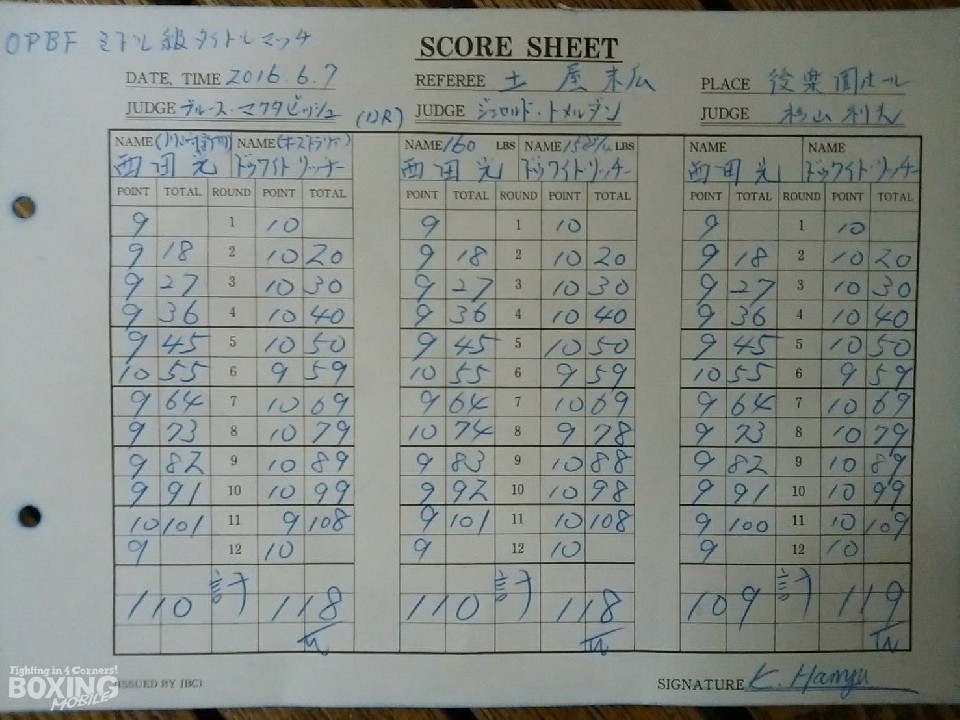 OPBF ミドル級タイトルマッチ
SCORE SHEET
DATE, TIME 2016.6.7 REFEREE 土屋末広 PLACE 後楽園ホール
JUDGE ブルース・マクタビッシュ JUDGE ジェロルド・トメルデン JUDGE 杉山利夫
NAME NAME(オーストラリア) NAME 160 LBS NAME LBS NAME NAME
西田光 ドワイト・リッチー 西田光 ドワイト・リッチー 西田光 ドワイト・リッチー
POINT TOTAL ROUND POINT TOTAL POINT TOTAL ROUND POINT TOTAL POINT TOTAL ROUND POINT TOTAL
9 1 10 9 1 10 9 1 10
9 18 2 10 20 9 18 2 10 20 9 18 2 10 20
9 27 3 10 30 9 27 3 10 30 9 27 3 10 30
9 36 4 10 40 9 36 4 10 40 9 36 4 10 40
9 45 5 10 50 9 45 5 10 50 9 45 5 10 50
10 55 6 9 59 10 55 6 9 59 10 55 6 9 59
9 64 7 10 69 9 64 7 10 69 9 64 7 10 69
9 73 8 10 79 10 74 8 9 78 9 73 8 10 79
9 82 9 10 89 9 83 9 10 88 9 82 9 10 89
9 91 10 10 99 9 92 10 10 98 9 91 10 10 99
10 101 11 9 108 9 101 11 10 108 9 100 11 10 109
9 12 10 9 12 10 9 12 10
110 計 118 110 計 118 109 計 119
(ISSUED BY JBC) SIGNATURE K. Hamyu
Fighting in 4 Corners!
BOXING
MOBILE